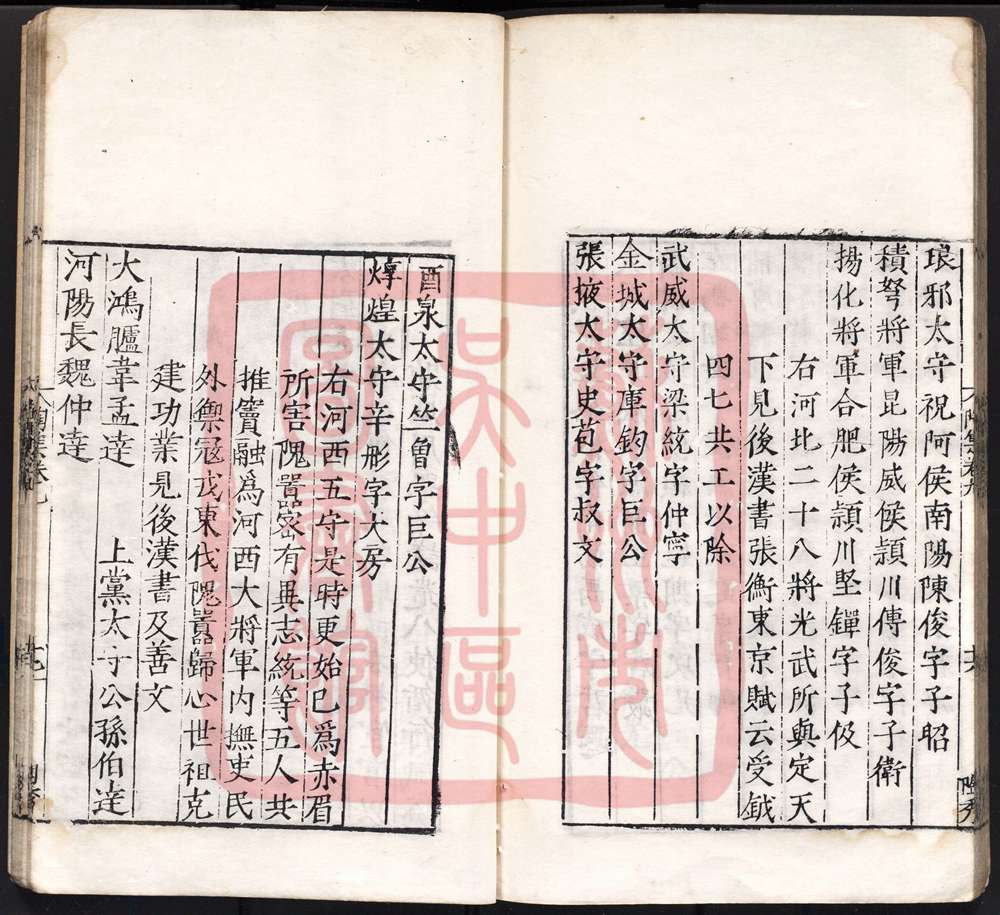 琅邪太守祝阿侯南陽陳俊字子昭
積弩將軍昆陽威侯潁川傳俊字子衛
揚化將軍合肥侯潁川堅鐔字子伋
右河北二十八將光武所與定天
下見後漢書張衡東京賦云受鉞
四七共工以除
武威太守梁統字仲寧
金城太守庫鈞字巨公
張掖太守史苞字叔文
酉泉太守竺曾字巨公
焞煌太守辛彤字大房
右河西五守是時更始已爲赤眉
所害隗囂密有異志統等五人共
推竇融爲河西大將軍內撫吏民
外禦寇戎東伐隗囂歸心世祖克
建功業見後漢書及善文
大鴻臚韋孟達 上黨太守公孫伯達
河陽長魏仲達
蘇州市
吳中區
圖書館
陶集卷九
十六
陶集卷九
十七